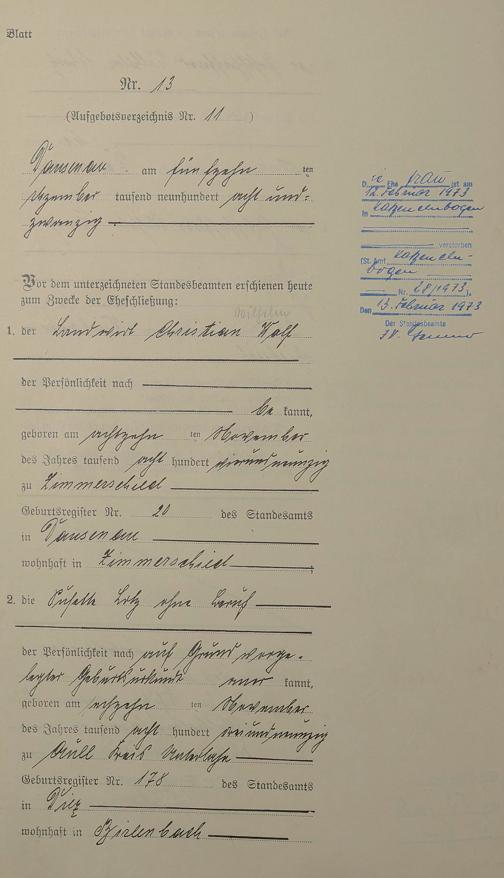 Blatt
Nr. 13
(Aufgebotsverzeichnis Nr. 11 )
Dausenau am fünfzehn ten
Dezember tausend neunhundert acht und=
zwanzig
Vor dem unterzeichneten Standesbeamten erschienen heute
zum Zwecke der Eheschließung:
Wilhelm
1. der Landwirt Christian Wolf
der Persönlichkeit nach
be kannt,
geboren am achtzehn ten November
des Jahres tausend acht hundert vierundneunzig
zu Zimmerschied
Geburtsregister Nr. 20 des Standesamts
in Dausenau
wohnhaft in Zimmerschied
2. die Susette Lotz ohne Beruf
der Persönlichkeit nach auf Grund vorge-
legter Geburtsurkunde aner kannt,
geboren am ten November
des Jahres tausend acht hundert dreiundneunzig
zu Aull Kreis Unterlahn
Geburtsregister Nr. 178 des Standesamts
in Diez
wohnhaft in Birlenbach
D ie Ehe frau ist am
12. Februar 1973
in Katzenelnbogen
verstorben
(St. Amt Katzeneln-
bogen
Nr. 28/1973).
Den 13. Februar 1973
Der Standesbeamte